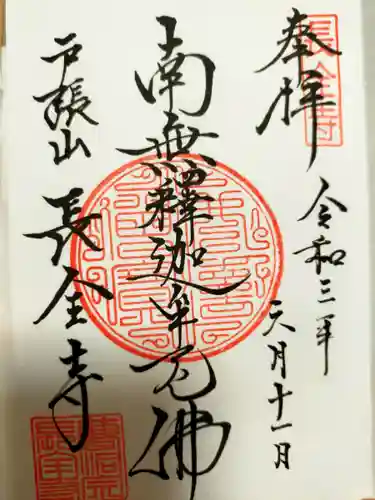 奉拝
令和三年
六月十一日
南無釋迦牟尼佛
戸張山
長全寺
長全寺